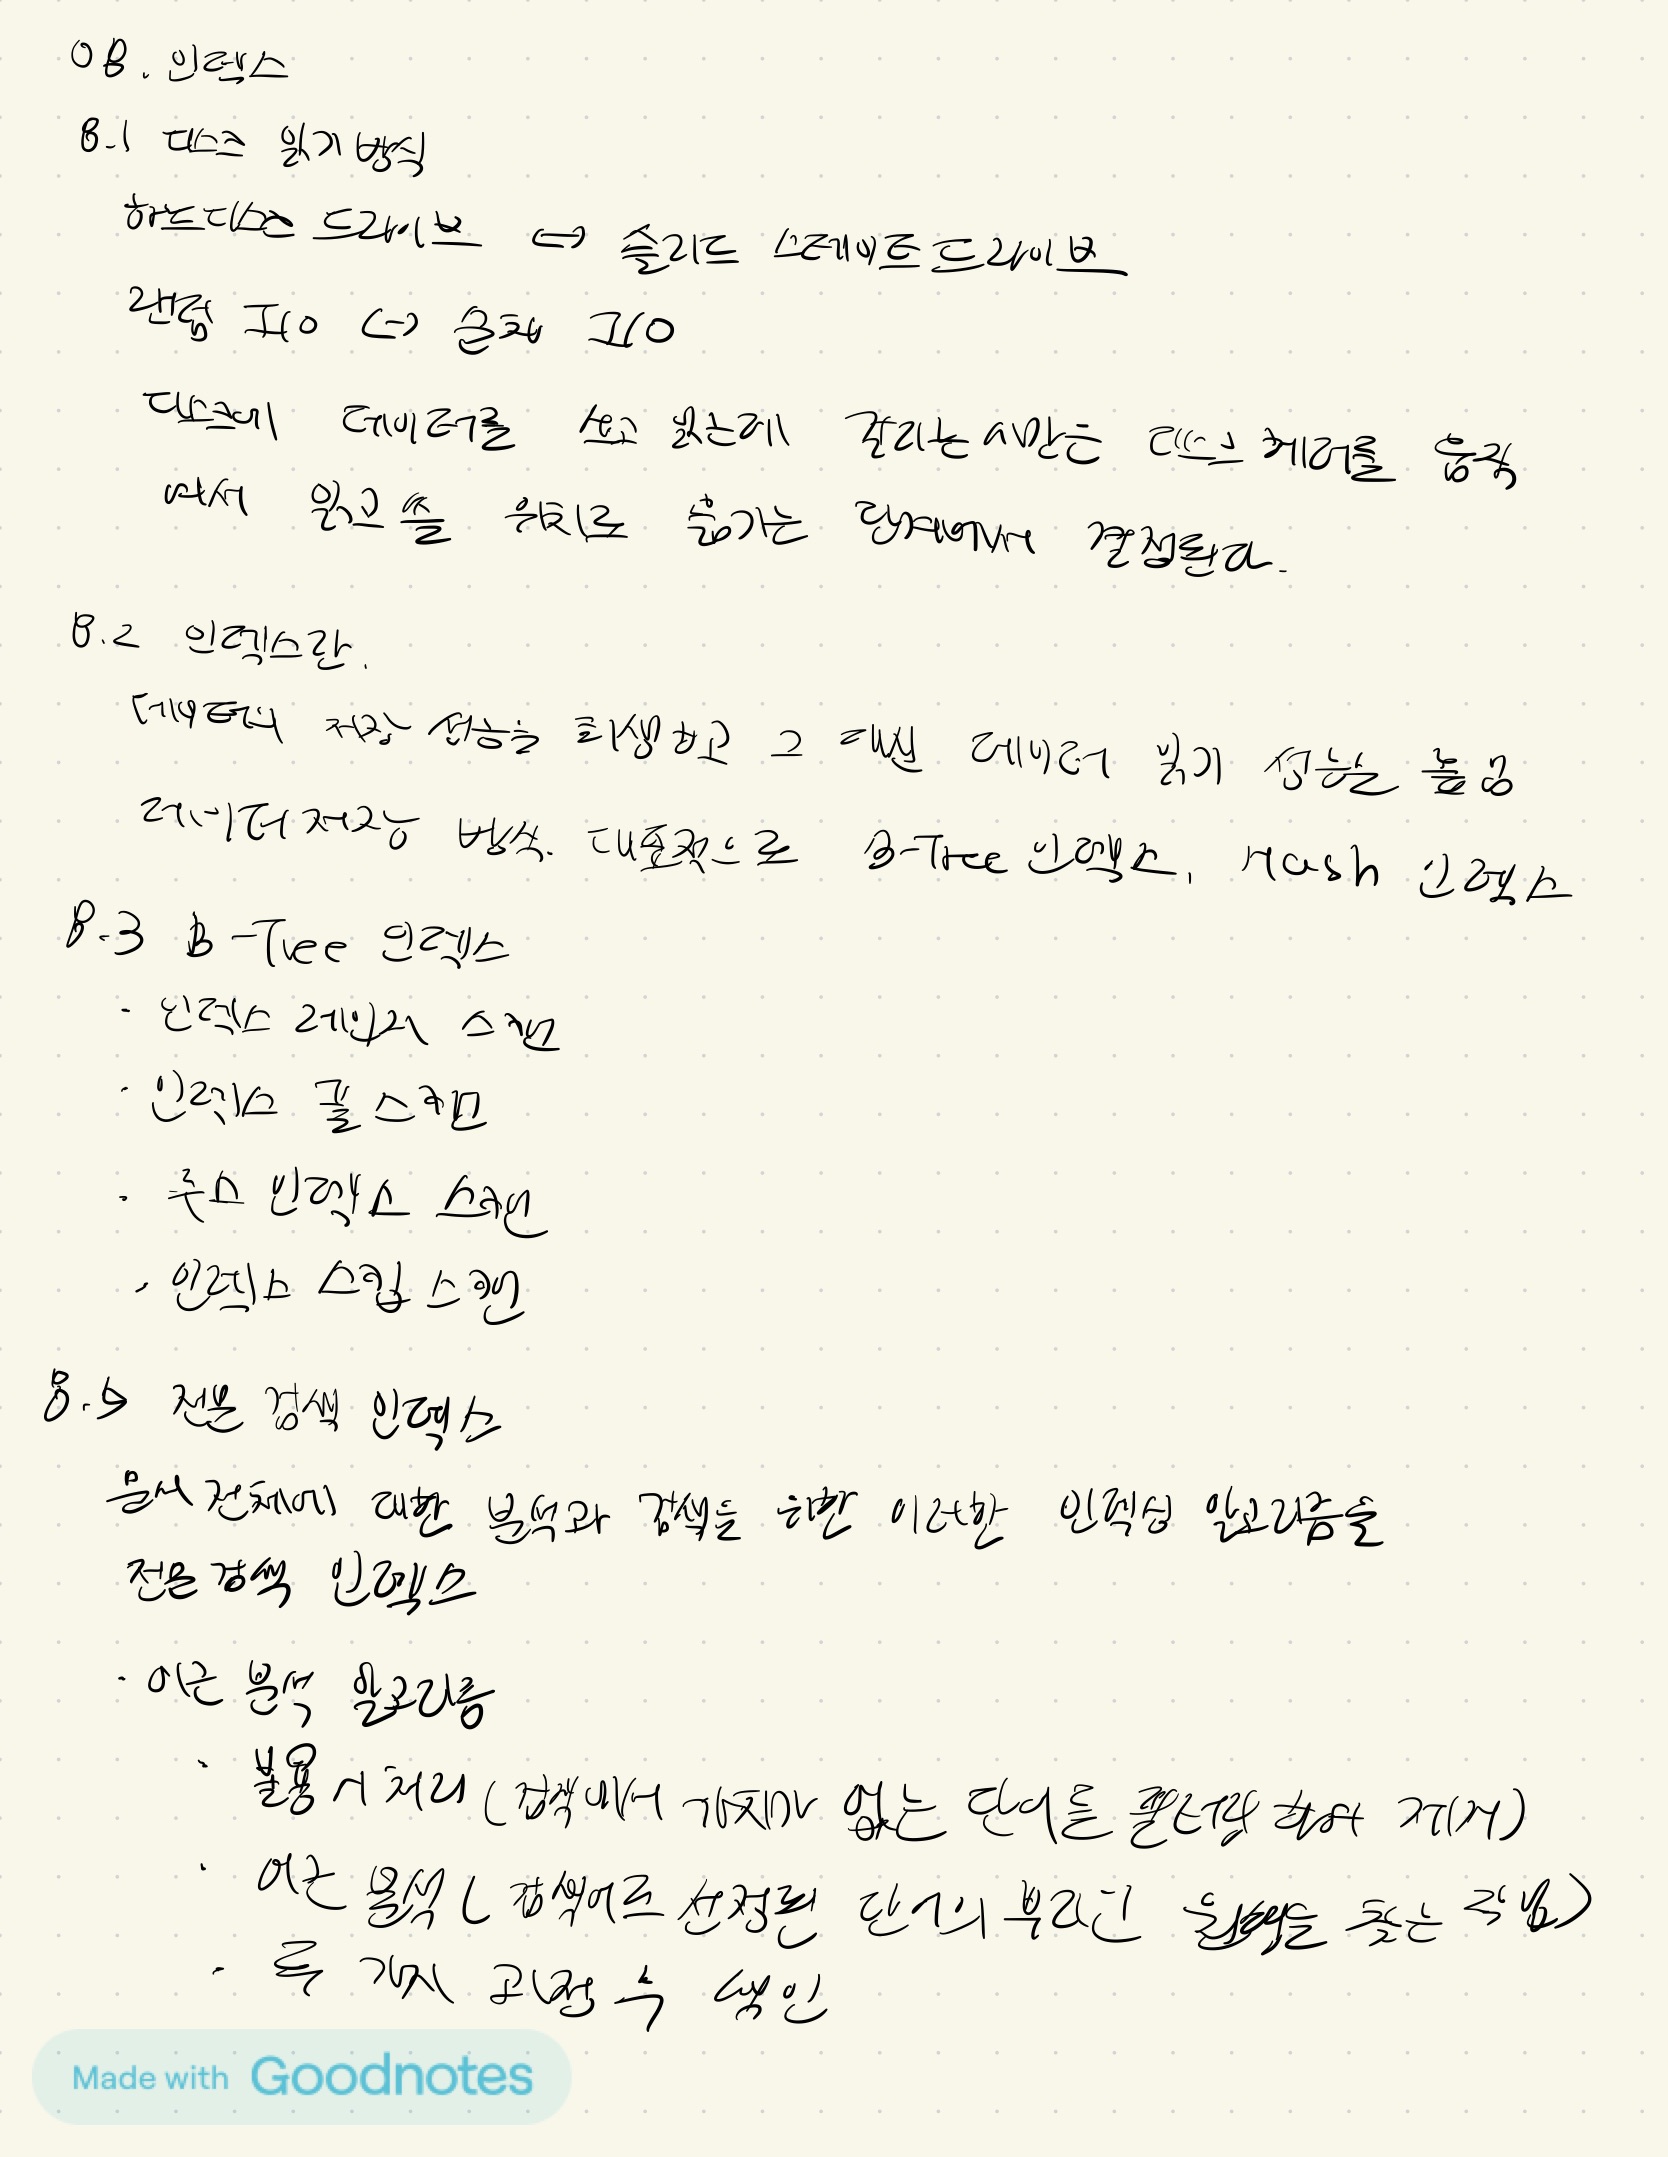 08. 인덱스
8.1 디스크 읽기 방식
하드디스크 드라이브 <-> 솔리드 스테이트 드라이브
랜덤 I/O <-> 순차 I/O
디스크에 데이터를 쓰고 읽는데 걸리는 시간은 디스크 헤더를 움직
여서 읽고 쓸 위치로 옮기는 단계에서 결정된다.
8.2 인덱스란.
데이터의 저장 성능을 희생하고 그 대신 데이터 읽기 성능을 높임
데이터 저장 방식. 대표적으로 B-Tree 인덱스, Hash 인덱스
8.3 B-Tree 인덱스
· 인덱스 레인지 스캔
· 인덱스 풀 스캔
· 루스 인덱스 스캔
· 인덱스 스킵 스캔
8.5 전문 검색 인덱스
문서 전체에 대한 분석과 검색을 위한 이러한 인덱싱 알고리즘을
전문 검색 인덱스
· 어근 분석 알고리즘
· 불용어 처리 (검색에서 가치가 없는 단어를 필터링 해서 제거)
· 어근 분석 (검색어로 선정된 단어의 뿌리인 원형을 찾는 작업)
· 두 가지 과정 후 색인
Made with Goodnotes